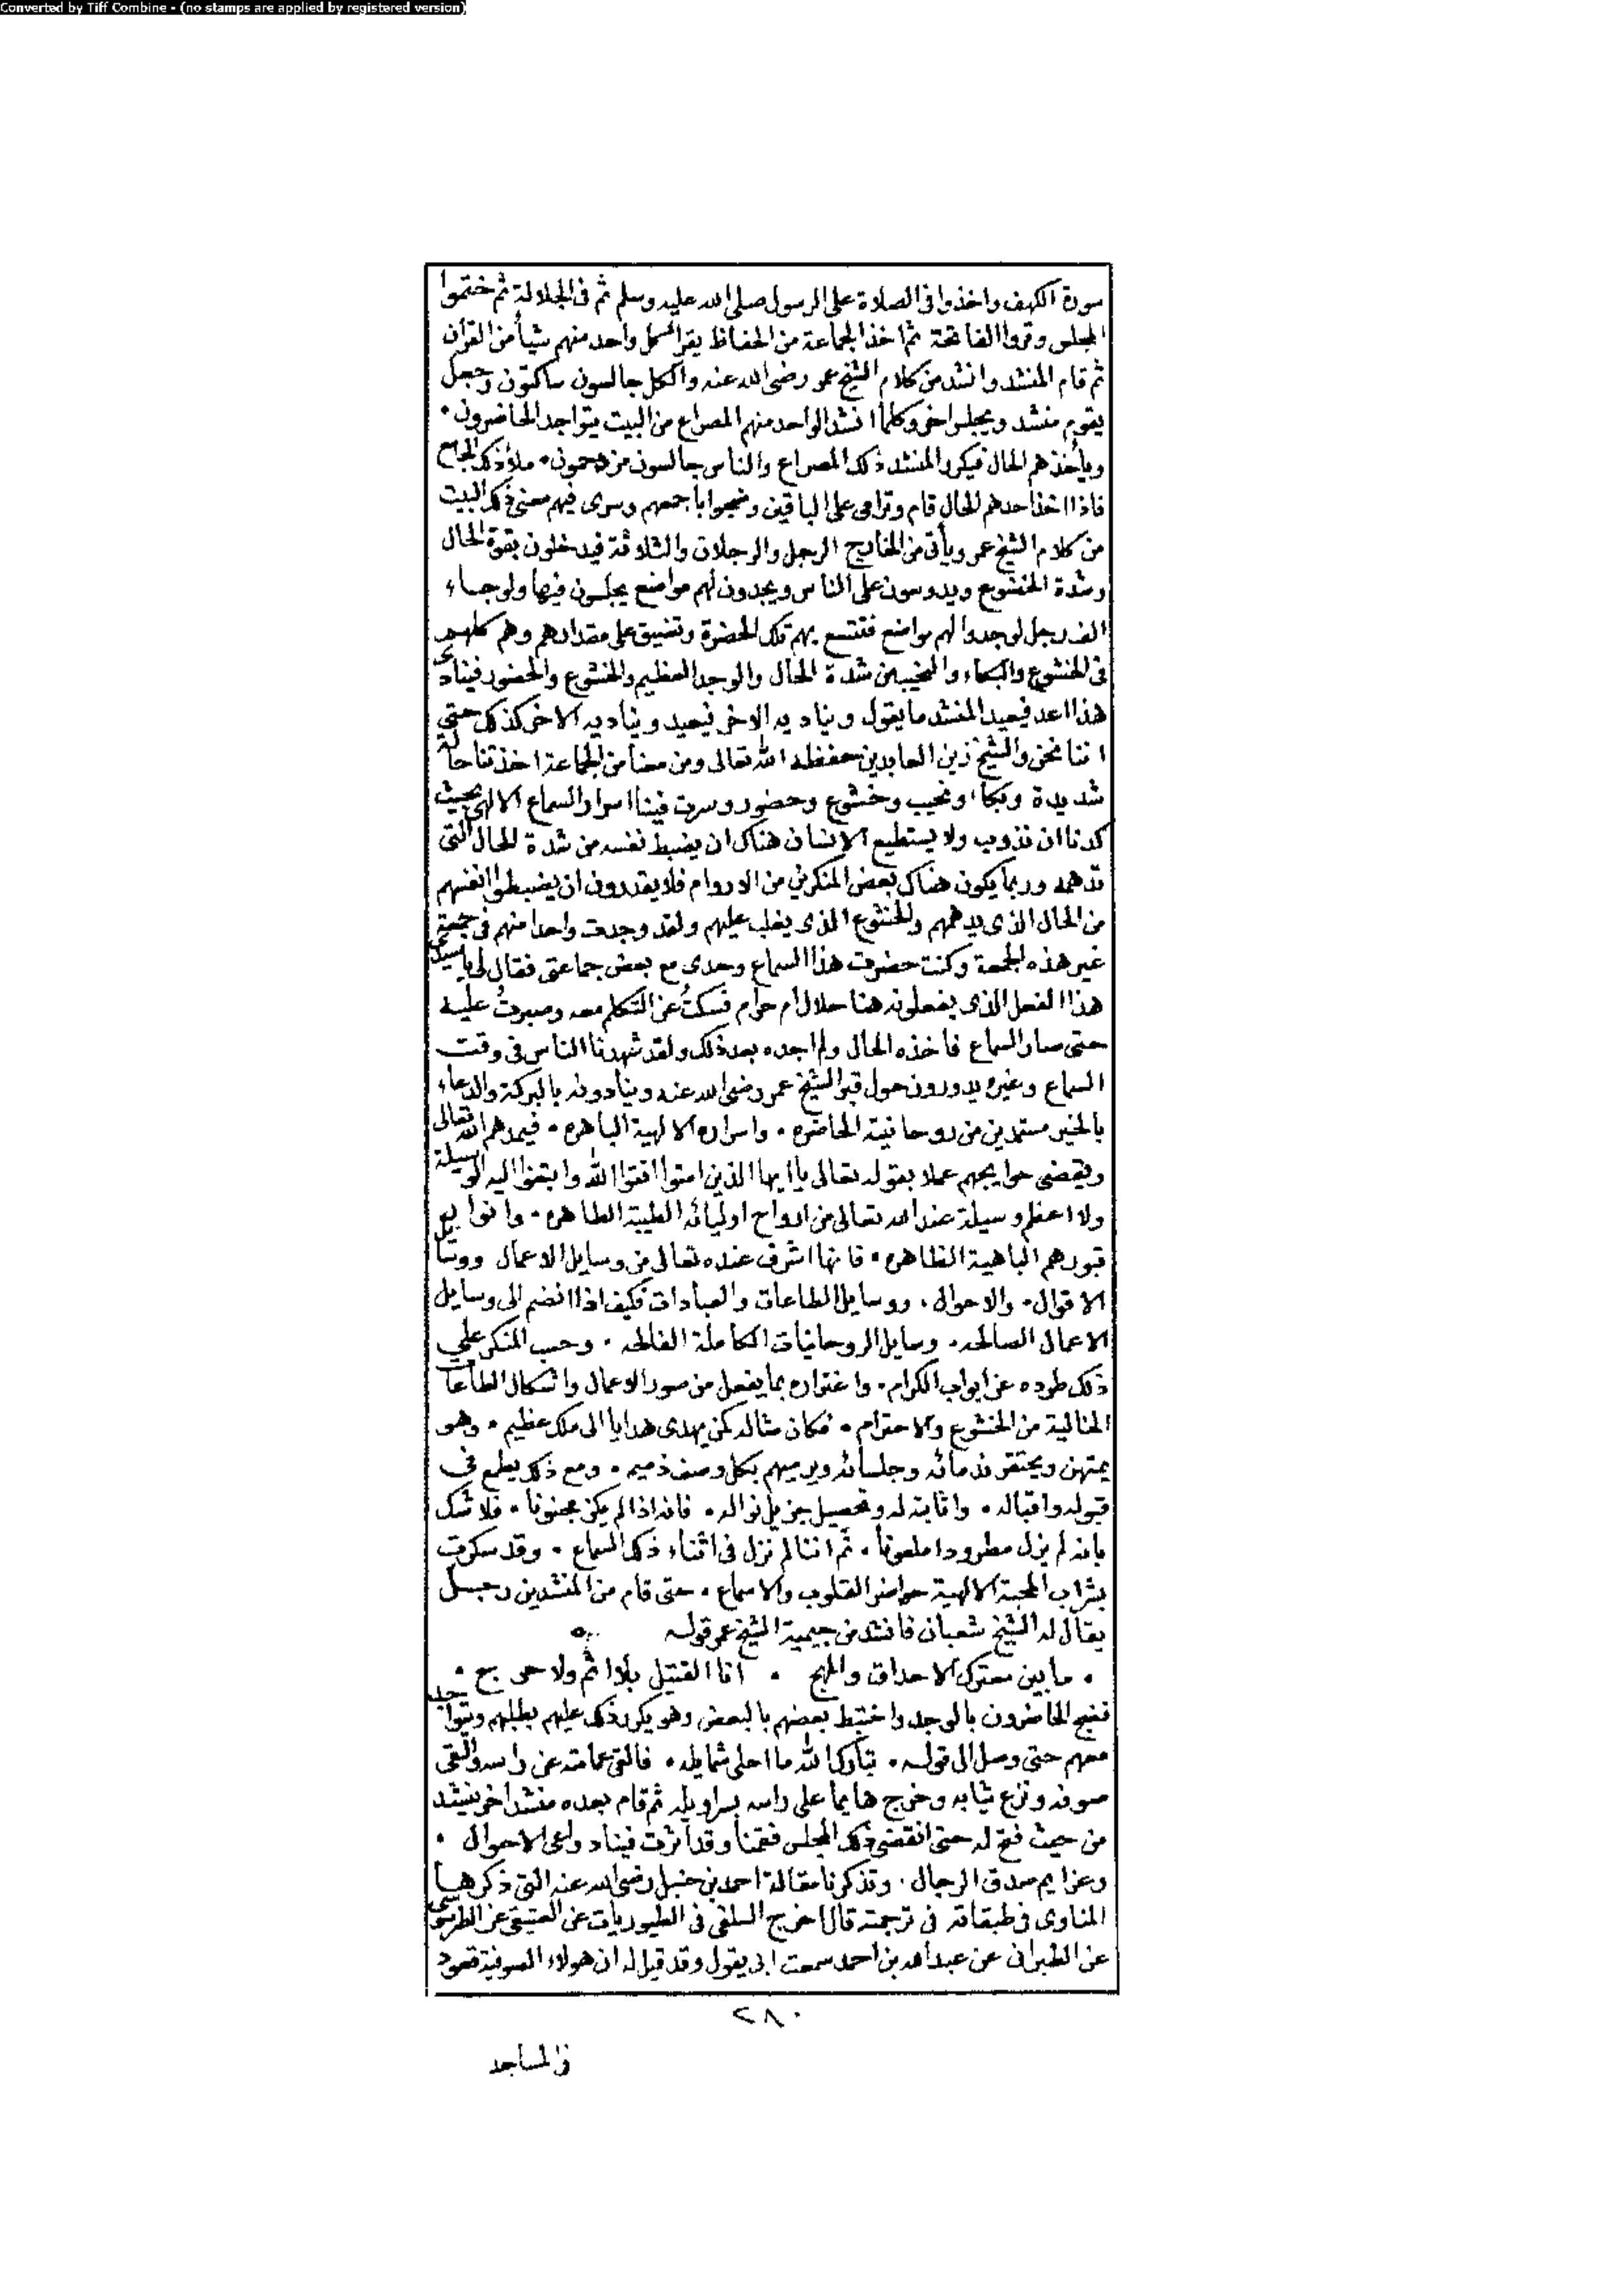 Converted by Tiff Combine - (no stamps are applied by registered version)
سورة الكهف واخذوا فى الصلاة على الرسول صلى الله عليه وسلم ثم فى الجلالة ثم ختموا
المجلس وقروا الفاتحة ثم اخذ الجماعة من الحفاظ يقرا كل واحد منهم شيأ من القرآن
ثم قام المنشد وانشد من كلام الشيخ عمر رضى الله عنه والكل جالسون ساكتون وجعل
يقوم منشد ويجلس اخر وكلما انشد الواحد منهم المصراع من البيت يتواجد الحاضرون ٠
ويأخذهم الحال فيكرر المنشد ذلك المصراع والناس جالسون مزدحمون ٠ ملأ ذلك الجامع
فاذا اخذ احدهم الحال قام وترامى على الباقين وضجوا باجمعهم وسرى فيهم معنى ذلك البيت
من كلام الشيخ عمر ويأتى من الخارج الرجل والرجلان والثلاثة فيدخلون بقوة الحال
وشدة الخشوع ويدوسون على الناس ويجدون لهم مواضع يجلسون فيها ولو جاء
الف رجل لوجدوا لهم مواضع فتتسع بهم تلك الحضرة وتضيق على مقدارهم وهم كلهم
فى الخشوع والبكاء والنحيب من شدة الحال والوجد العظيم والخشوع والحضور فينادى
هذا اعد فيعيد المنشد ما يقول ويناديه الاخر فيعيد ويناديه الاخر كذلك حتى
اننا نحن والشيخ زين العابدين حفظه الله تعالى ومن معنا من الجماعة اخذتنا حالة
شديدة وبكاء ونحيب وخشوع وحضور وسرت فينا اسرار السماع الالهى بحيث
كدنا ان نذوب ولا يستطيع الانسان هناك ان يضبط نفسه من شدة الحال التى
تدهمه وربما يكون هناك بعض المنكرين من الاروام فلا يقدرون ان يضبطوا انفسهم
من الحال الذى يدهمهم والخشوع الذى يغلب عليهم ولقد وجدت واحدا منهم فى جمعة
غير هذه الجمعة وكنت حضرت هذا السماع وحدى مع بعض جماعتى فقال لى يا سيدى
هذا الفعل الذى يفعلونه هنا حلال ام حرام فسكتُ عن التكلم معه وصبرتُ عليه
حتى صار السماع فاخذه الحال ولم اجده بعد ذلك ولقد شهدنا الناس فى وقت
السماع وغيره يدورون حول قبر الشيخ عمر رضى الله عنه وينادونه بالبركة والدعاء
بالخير مستمدين من روحانيته الحاضره ٠ واسراره الالهية الباهره ٠ فيمدهم الله تعالى
ويقضى حوايجهم عملا بقوله تعالى يا ايها الذين امنوا اتقوا الله وابتغوا اليه الوسيلة
ولا اعظم وسيلة عند الله تعالى من ارواح اوليائه الطيبة الطاهره ٠ وانوار
قبورهم الباهية الظاهره ٠ فانها اشرف عنده تعالى من وسايل الاعمال ووسايل
الاقوال ٠ والاحوال ٠ ووسايل الطاعات والعبادات فكيف اذا انضم الى وسايل
الاعمال الصالحه ٠ وسايل الروحانيات الكاملة الفالحه ٠ وحسب المنكر على
ذلك طرده عن ابواب الكرام ٠ واغتراره بما يفعل من صور الاعمال واشكال الطاعات
الخالية من الخشوع والاحترام ٠ فكان مثاله كمن يهدى هدايا الى ملك عظيم ٠ وهو
يمتهن ويحتقر ندمائه وجلسائه ويرميهم بكل وصف ذميم ٠ ومع ذلك يطمع فى
قبوله واقباله ٠ واثابته له وتحصيل جزيل نواله ٠ فانه اذا لم يكن مجنونا ٠ فلا شك
بانه لم يزل مطرودا ملعونا ٠ ثم اننا لم نزل فى اثناء ذلك السماع ٠ وقد سكرت
بشراب المحبة الالهية حواضر القلوب والاسماع ٠ حتى قام من المنشدين رجل
يقال له الشيخ شعبان فانشد من جيمية الشيخ عمر قوله
٠ ما بين معترك الاحداق والمهج ٠ انا القتيل بلا اثم ولا حرج ٠
فضج الحاضرون بالوجد واختبط بعضهم بالبعض وهو يكرر ذلك عليهم بطلبهم ويتواجد
معهم حتى وصل الى قوله ٠ تبارك الله ما احلى شمايله ٠ فالقى عمامته عن راسه والقى
صوفه ونزع ثيابه وخرج هايما على راسه بسراويله ثم قام بعده منشد اخر ينشد
من حيث فتح له حتى انقضى ذلك المجلس فقمنا وقد اثرت فينا دواعى الاحوال ٠
وعزايم صدق الرجال ٠ وتذكرنا مقالة احمد بن حنبل رضى الله عنه التى ذكرها
المناوى فى طبقاته فى ترجمته قال اخرج السلفى فى الطيوريات عن العتيقى عن الطرسوسى
عن الطبرانى عن عبد الله بن احمد سمعت ابى يقول وقد قيل له ان هولاء الصوفية قعود
٢٨٠
فى المساجد